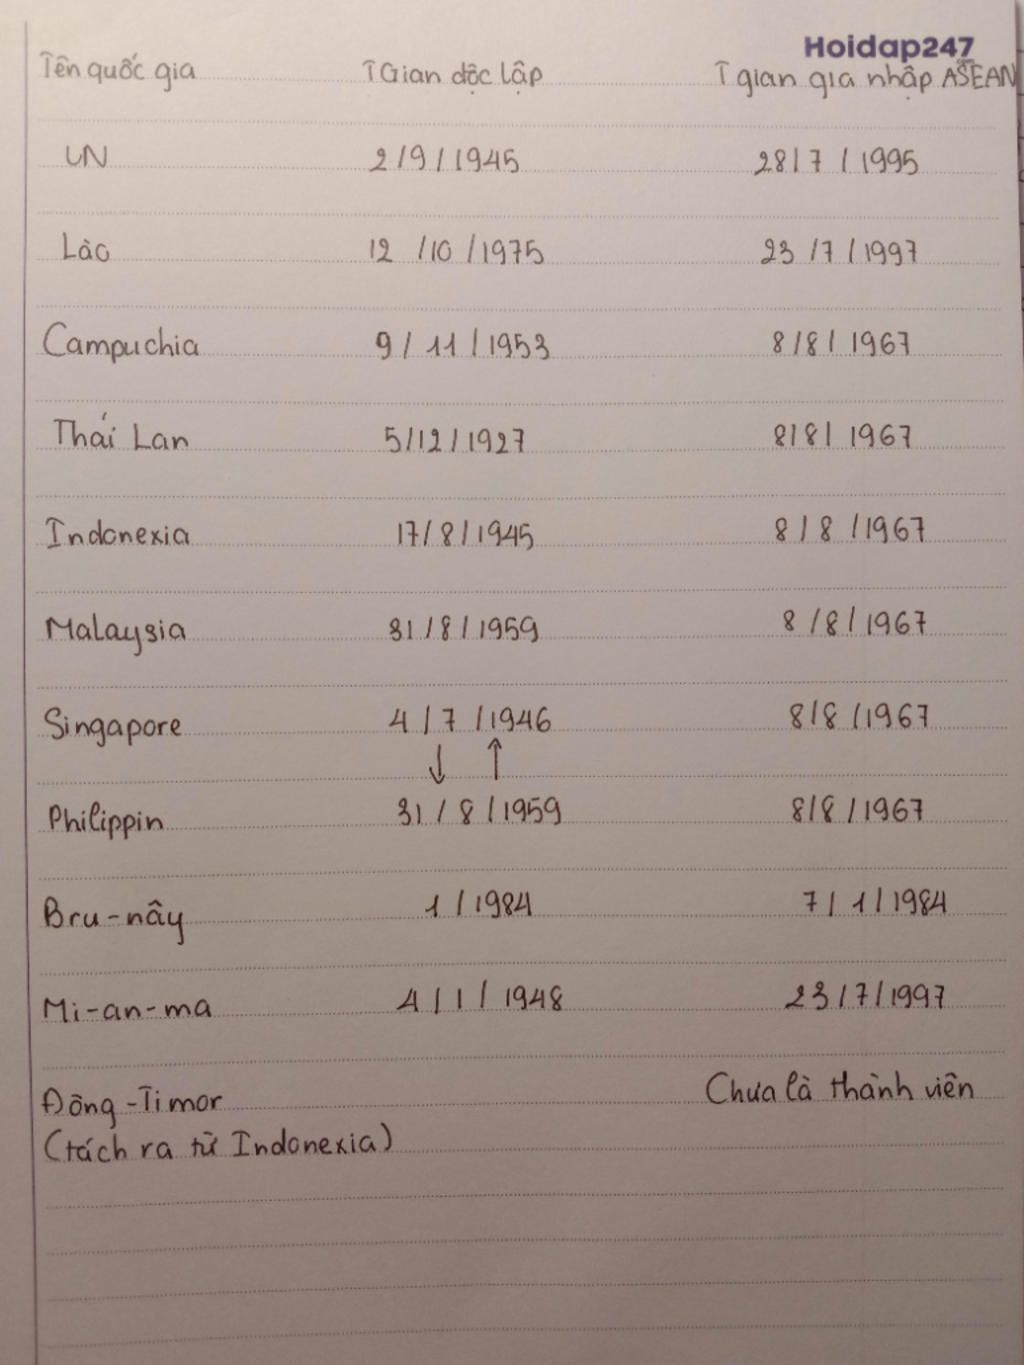 Hoidap247
Tên quốc gia TGian độc lập T gian gia nhập ASEAN
VN 2/9/1945 28/7/1995
Lào 12/10/1975 23/7/1997
Campuchia 9/11/1953 8/8/1967
Thái Lan 5/12/1927 8/8/1967
Indonexia 17/8/1945 8/8/1967
Malaysia 31/8/1959 8/8/1967
Singapore 4/7/1946 8/8/1967
↓ ↑
Philippin 31/8/1959 8/8/1967
Bru-nây 1/1984 7/1/1984
Mi-an-ma 4/1/1948 23/7/1997
Đông-Timor Chưa là thành viên
(tách ra từ Indonexia)